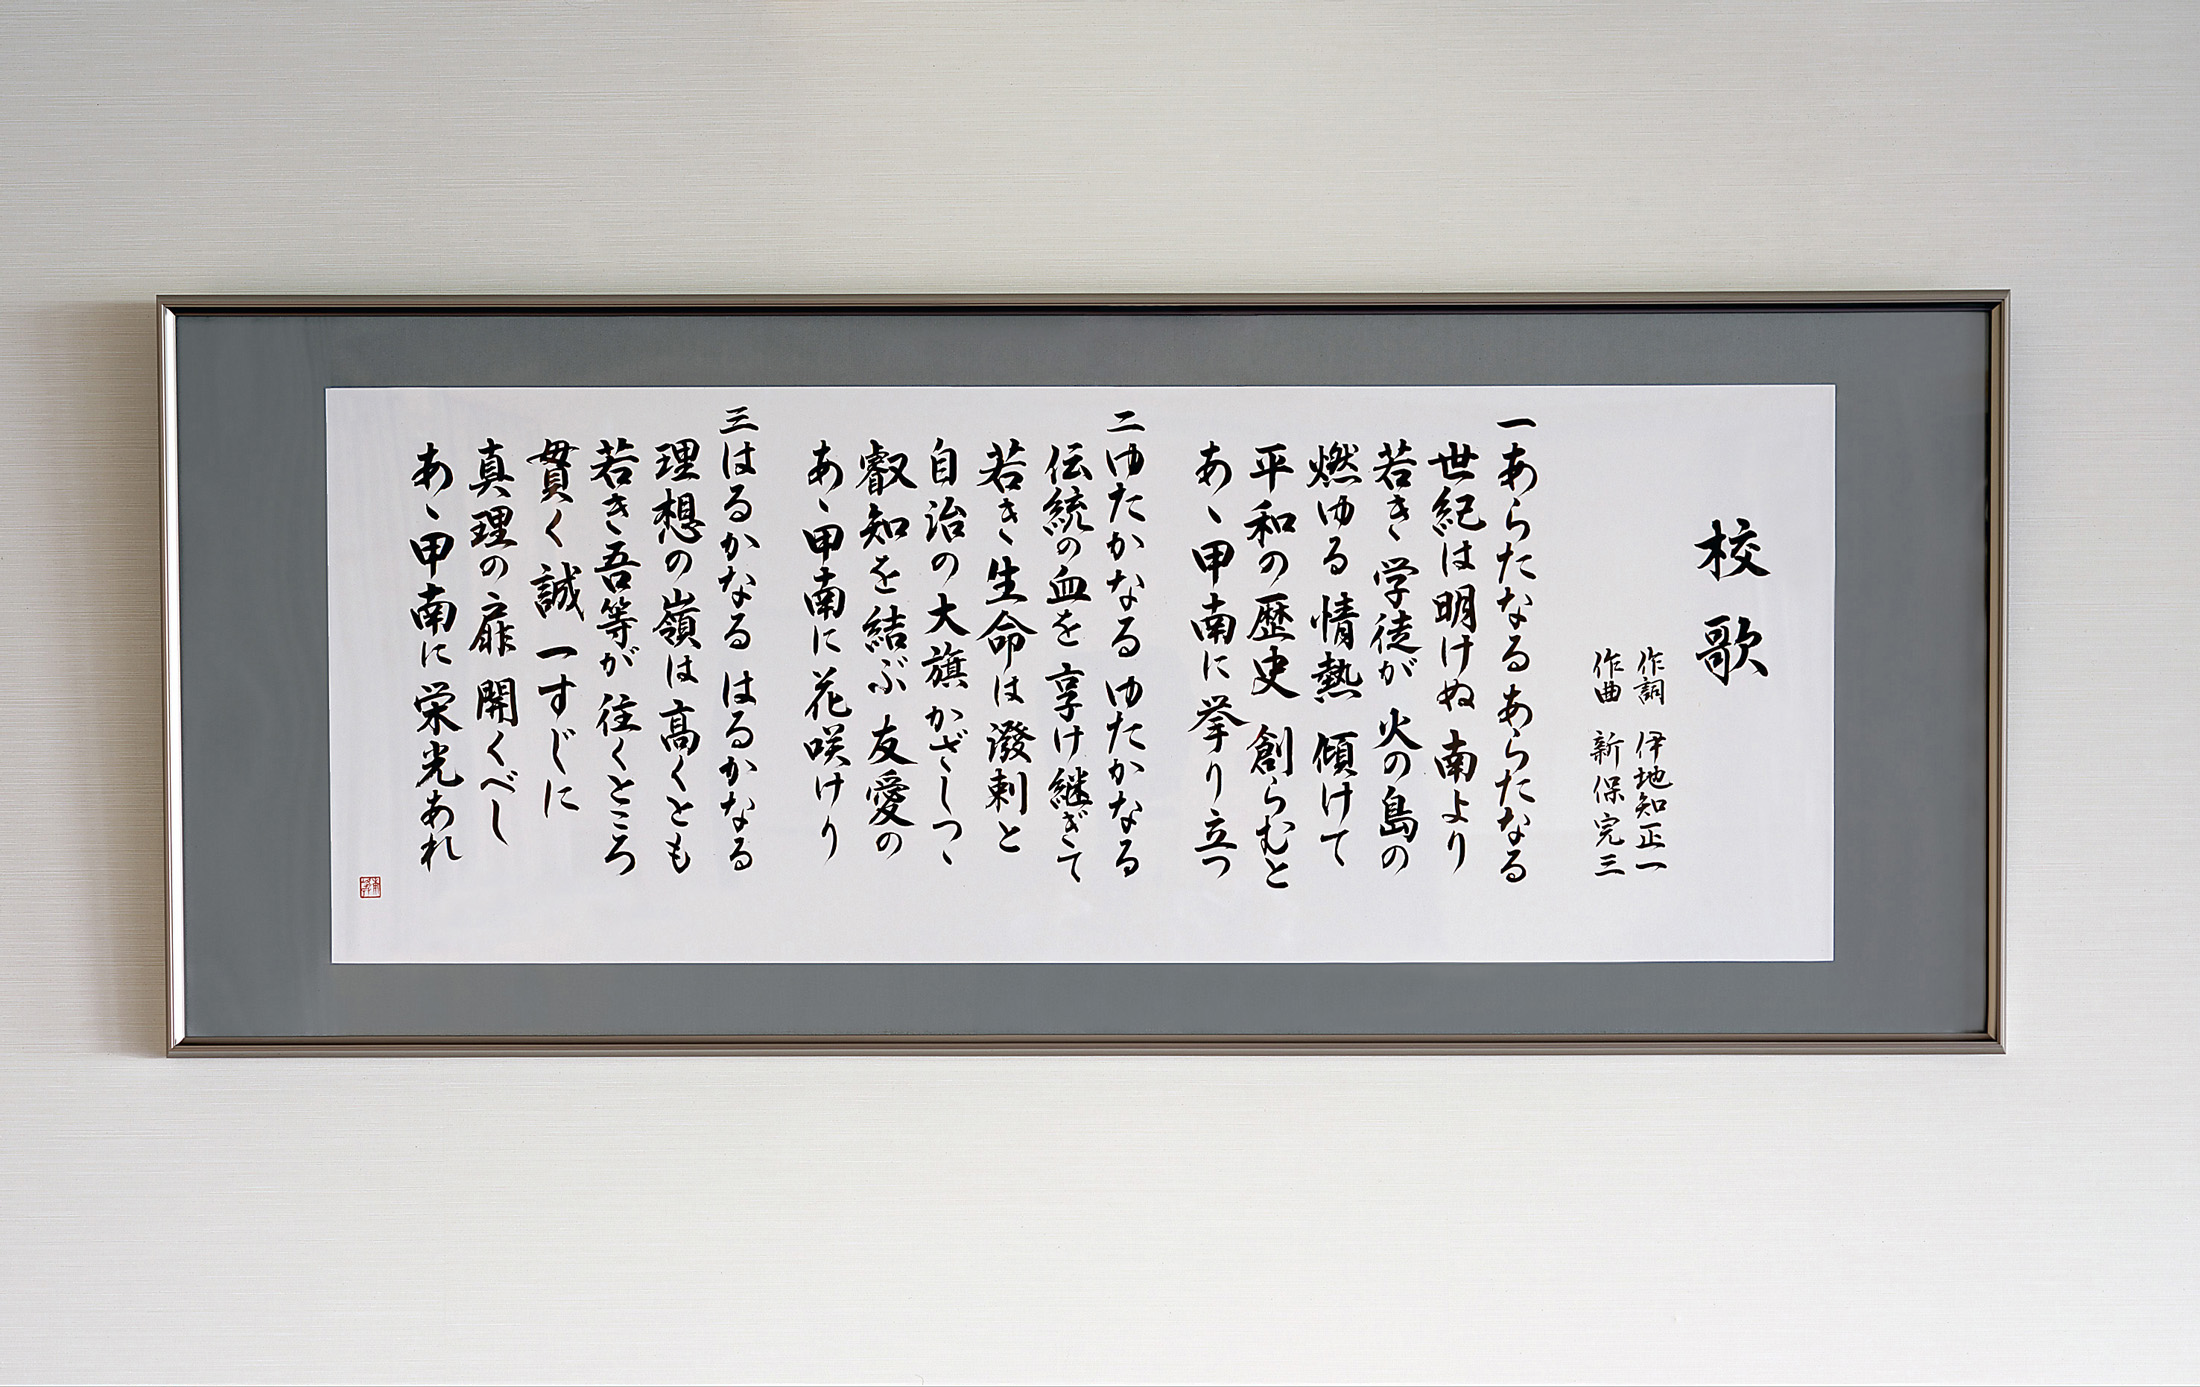 校歌
作詞 伊地知正一
作曲 新保完三
一あらたなる あらたなる
世紀は明けぬ 南より
若き学徒が 火の島の
燃ゆる情熱 傾けて
平和の歴史 創らむと
あゝ甲南に挙り立つ
二ゆたかなる ゆたかなる
伝統の血を 享け継ぎて
若き生命は 潑剌と
自治の大旗 かざしつゝ
叡知を結ぶ 友愛の
あゝ甲南に 花咲けり
三はるかなる はるかなる
理想の嶺は 高くとも
若き吾等が 往くところ
貫く誠 一すじに
真理の扉 開くべし
あゝ甲南に 栄光あれ